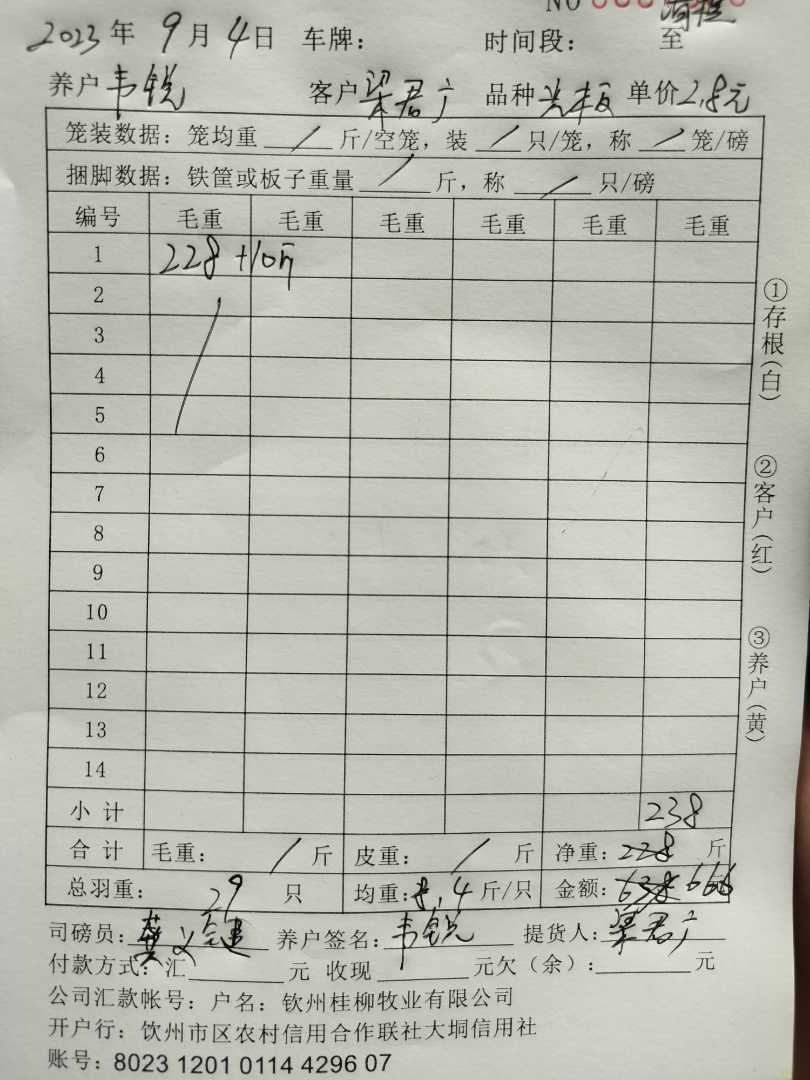 NO
2023年 9月4日 车牌： 时间段： 至
养户 韦锐 客户 梁君广 品种 单价 2.8元
笼装数据：笼均重 / 斤/空笼，装 / 只/笼，称 / 笼/磅
捆脚数据：铁筐或板子重量 / 斤，称 / 只/磅
编号 毛重 毛重 毛重 毛重 毛重 毛重
1 228 +10斤
2
3
4
5
6
7
8
9
10
11
12
13
14
小计 238
合计 毛重： / 斤 皮重： / 斤 净重：228 斤
总羽重： 29 只 均重：8.4 斤/只 金额：638 666
司磅员： 养户签名：韦锐 提货人：梁君广
付款方式：汇 元 收现 元欠（余）： 元
公司汇款帐号：户名：钦州桂柳牧业有限公司
开户行：饮州市区农村信用合作联社大垌信用社
账号：8023 1201 0114 4296 07
①存根(白)
②客户(红)
③养户(黄)